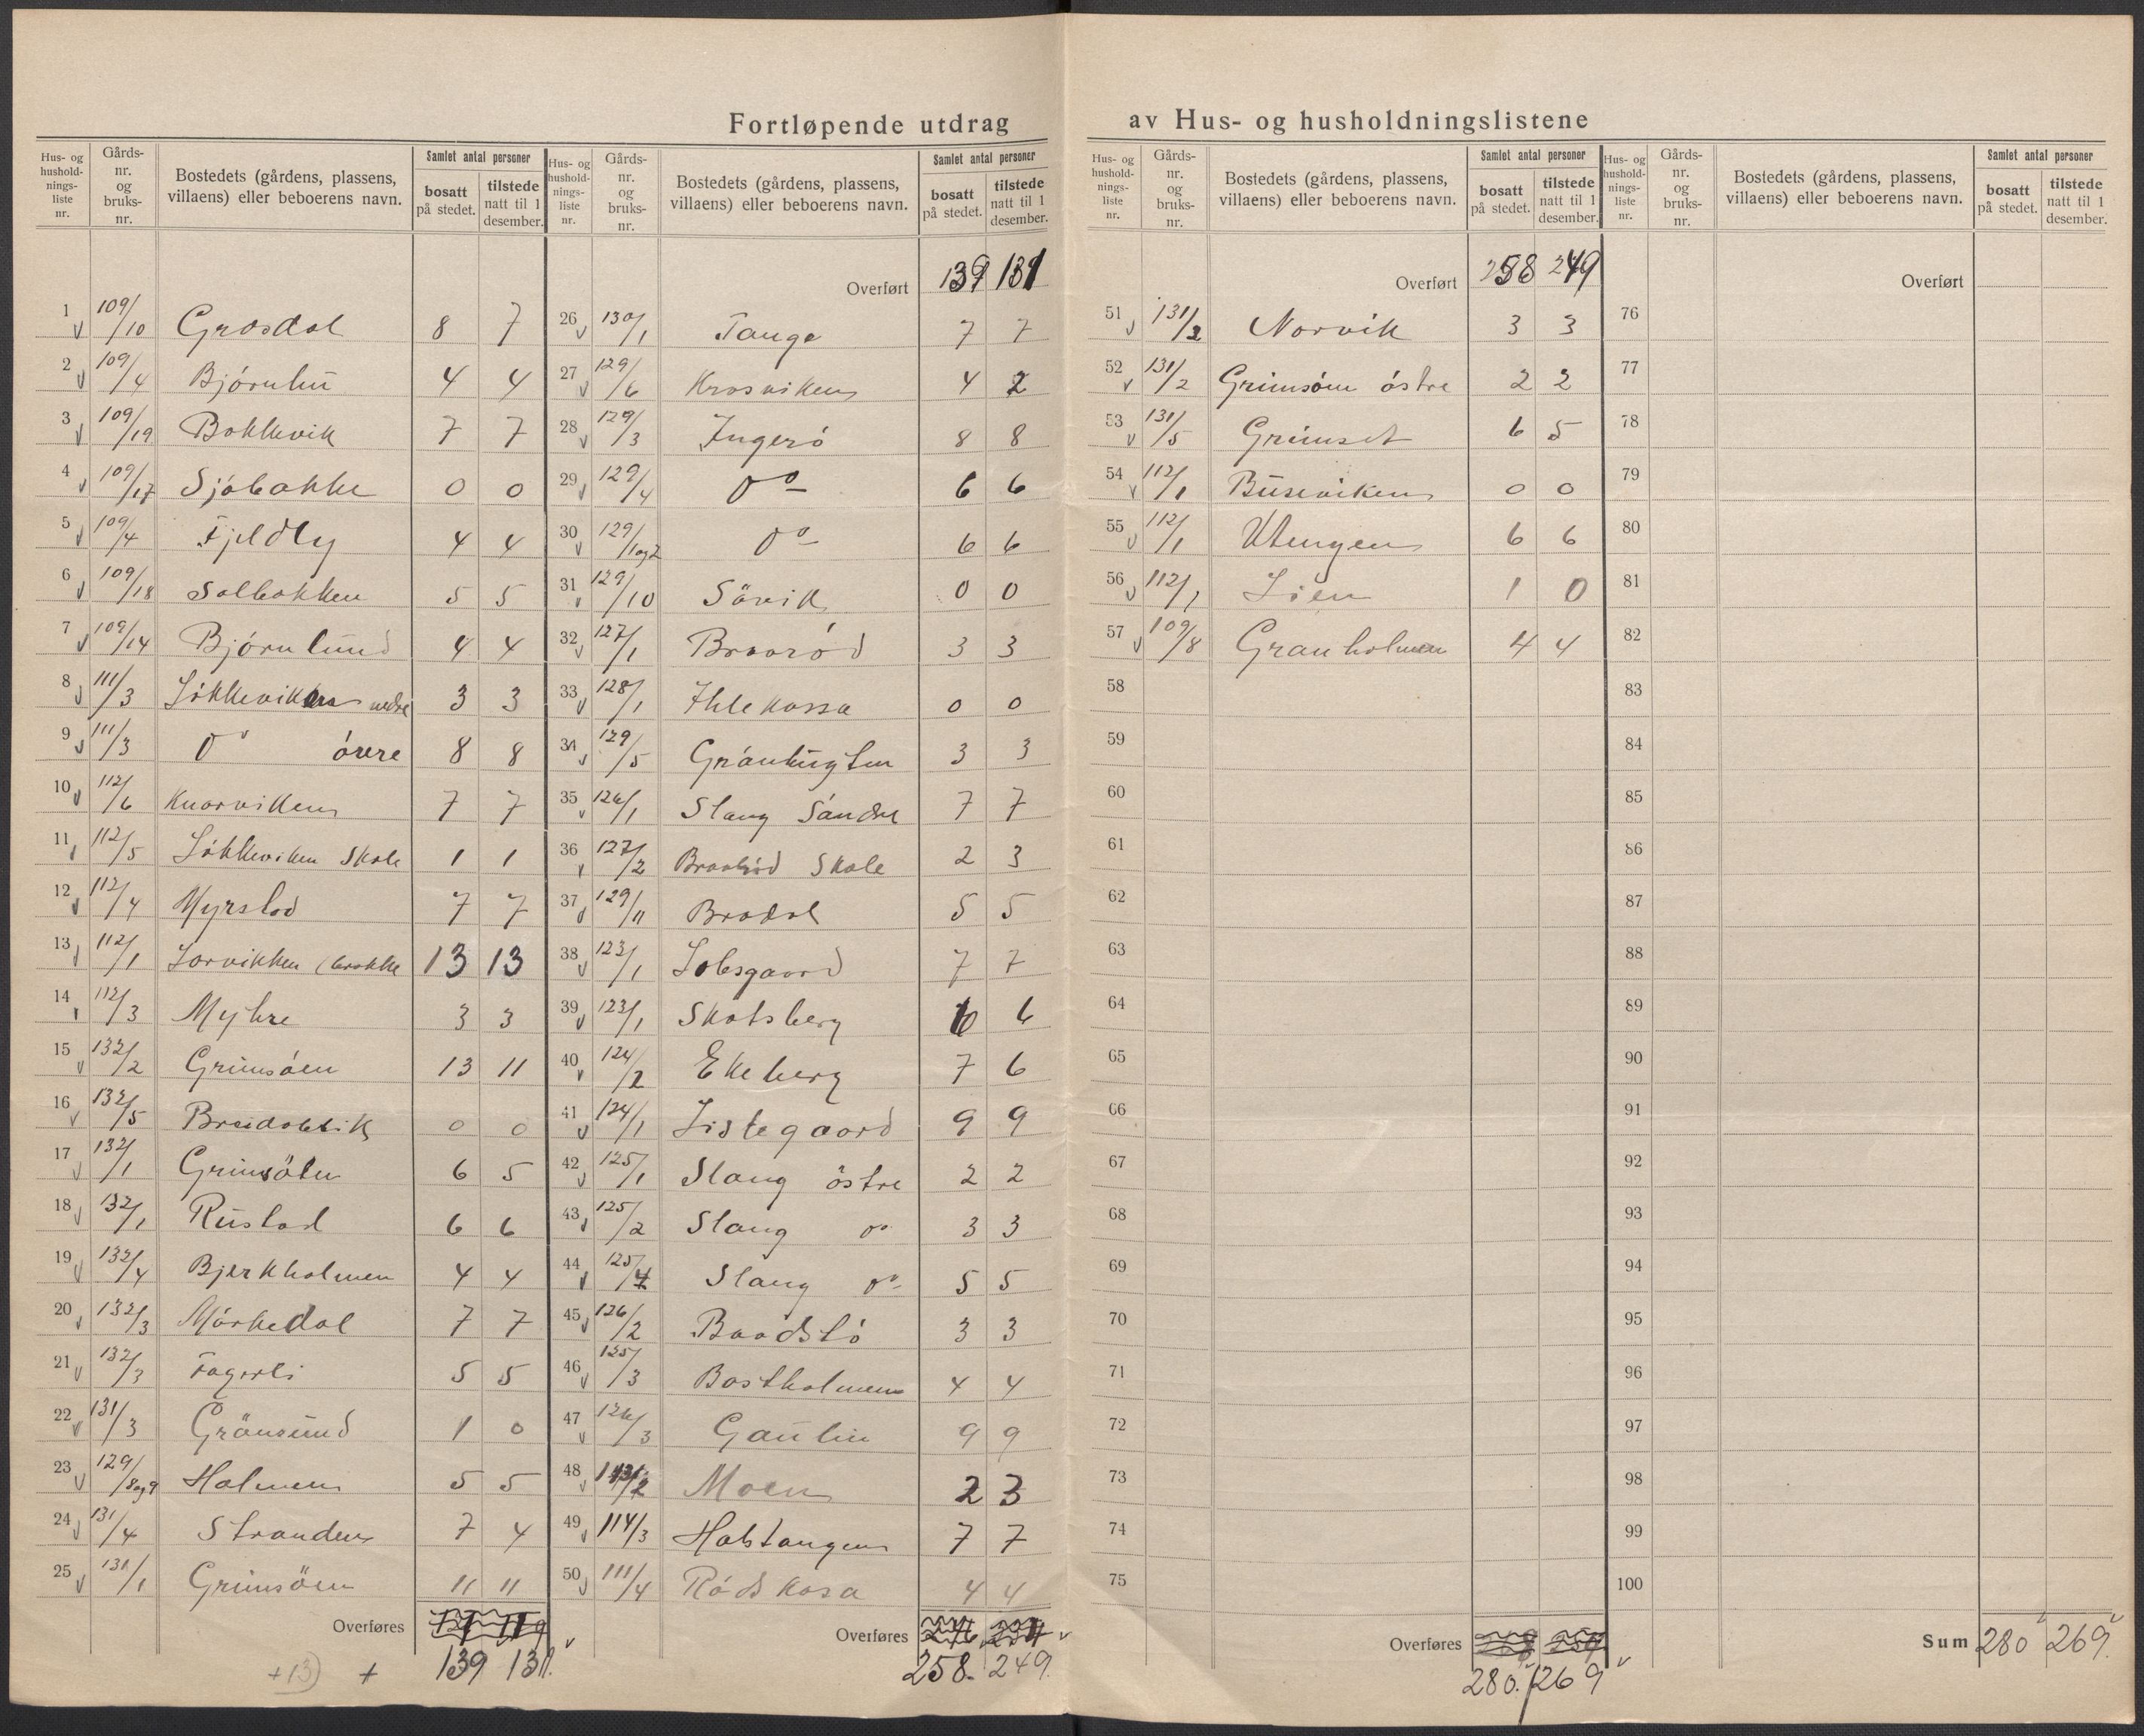 Fortløpende utdrag av Hus- og husholdningslistene
Hus- og hushold- nings- liste nr. Gårds- nr. og bruks- nr. Bostedets (gårdens, plassens, villaens) eller beboerens navn. Samlet antal personer bosatt på stedet. tilstede natt til 1 desember.
1 109/10 Grosdal 8 7
2 109/4 Bjørnlii 4 4
3 109/19 Bakkevik 7 7
4 109/17 Sjøbakke 0 0
5 109/4 Fjeldly 4 4
6 109/18 Solbakken 5 5
7 109/14 Bjørnlund 4 4
8 111/3 Løkkevikken nedre 3 3
9 111/3 Do øvre 8 8
10 112/6 Knarviken 7 7
11 112/5 Løkkeviken Skole 1 1
12 112/4 Myrstad 7 7
13 112/1 Lorvikken (brakke 13 13
14 112/3 Myhre 3 3
15 132/2 Grimsøen 13 11
16 132/5 Breidablik 0 0
17 132/1 Grimsøen 6 5
18 132/1 Rustad 6 6
19 132/4 Bjerkholmen 4 4
20 132/3 Mørkedal 7 7
21 132/3 Fagerli 5 5
22 131/3 Grönsund 1 0
23 129/8og9 Holmen 5 5
24 131/4 Stranden 7 4
25 131/1 Grimsöen 11 11
Overføres
+13) + 139 131.
Hus- og hushold- nings- liste nr. Gårds- nr. og bruks- nr. Bostedets (gårdens, plassens, villaens) eller beboerens navn. Samlet antal personer bosatt på stedet. tilstede natt til 1 desember.
Overført 139 131
26 130/1 Tange 7 7
27 129/6 Krosviken 4 2
28 129/3 Ingerø 8 8
29 129/4 Do 6 6
30 129/1og2 Do 6 6
31 129/10 Sövik 0 0
32 127/1 Braarød 3 3
33 128/1 Ihlekassa 0 0
34 129/5 3 3
35 126/1 Slang Søndre 7 7
36 127/2 Braarød Skole 2 3
37 129/11 Bradal 5 5
38 123/1 Solsgaard 7 7
39 123/1 Skatsberg 6 6
40 124/2 Ekeberg 7 6
41 124/1 Listegaard 9 9
42 125/1 Slang østre 2 2
43 125/2 Slang do 3 3
44 125/4 Slang do 5 5
45 126/2 Baadstø 3 3
46 125/3 Bastholmen 4 4
47 126/3 Gaulin 9 9
48 Moen 2 3
49 114/3 Halstangen 7 7
50 111/4 Rødskasa 4 4
Overføres
258. 249.
Hus- og hushold- nings- liste nr. Gårds- nr. og bruks- nr. Bostedets (gårdens, plassens, villaens) eller beboerens navn. Samlet antal personer bosatt på stedet. tilstede natt til 1 desember.
Overført 258 249
51 131/2 Norvik 3 3
52 131/2 Grimsøen østre 2 2
53 131/5 Grimset 6 5
54 112/1 Buseviken 0 0
55 112/1 Utengen 6 6
56 112/1 Lien 1 0
57 109/8 Granholmen 4 4
58
59
60
61
62
63
64
65
66
67
68
69
70
71
72
73
74
75
Overføres
280. 269
Hus- og hushold- nings- liste nr. Gårds- nr. og bruks- nr. Bostedets (gårdens, plassens, villaens) eller beboerens navn. Samlet antal personer bosatt på stedet. tilstede natt til 1 desember.
Overført
76
77
78
79
80
81
82
83
84
85
86
87
88
89
90
91
92
93
94
95
96
97
98
99
100
Sum 280 269.